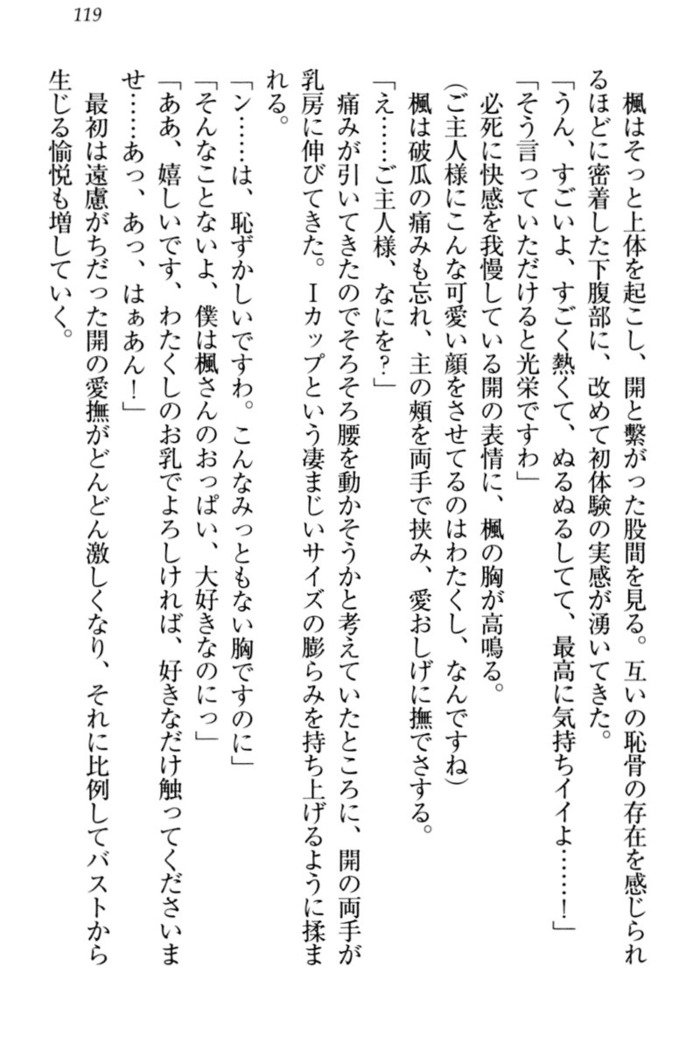 119
楓はそっと上体を起こし、開と繋がった股間を見る。互いの恥骨の存在を感じられ
るほどに密着した下腹部に、改めて初体験の実感が湧いてきた。
「うん、すごいよ、すごく熱くて、ぬるぬるしてて、最高に気持ちイイよ……！」
「そう言っていただけると光栄ですわ」
必死に快感を我慢している開の表情に、楓の胸が高鳴る。
(ご主人様にこんな可愛い顔をさせてるのはわたくし、なんですね)
楓は破瓜の痛みも忘れ、主の頰を両手で挟み、愛おしげに撫でさする。
「え……ご主人様、なにを？」
痛みが引いてきたのでそろそろ腰を動かそうかと考えていたところに、開の両手が
乳房に伸びてきた。Ｉカップという凄まじいサイズの膨らみを持ち上げるように揉ま
れる。
「ン……は、恥ずかしいですわ。こんなみっともない胸ですのに」
「そんなことないよ、僕は楓さんのおっぱい、大好きなのにっ」
「ああ、嬉しいです、わたくしのお乳でよろしければ、好きなだけ触ってくださいま
せ……あっ、あっ、はぁあん！」
最初は遠慮がちだった開の愛撫がどんどん激しくなり、それに比例してバストから
生じる愉悦も増していく。